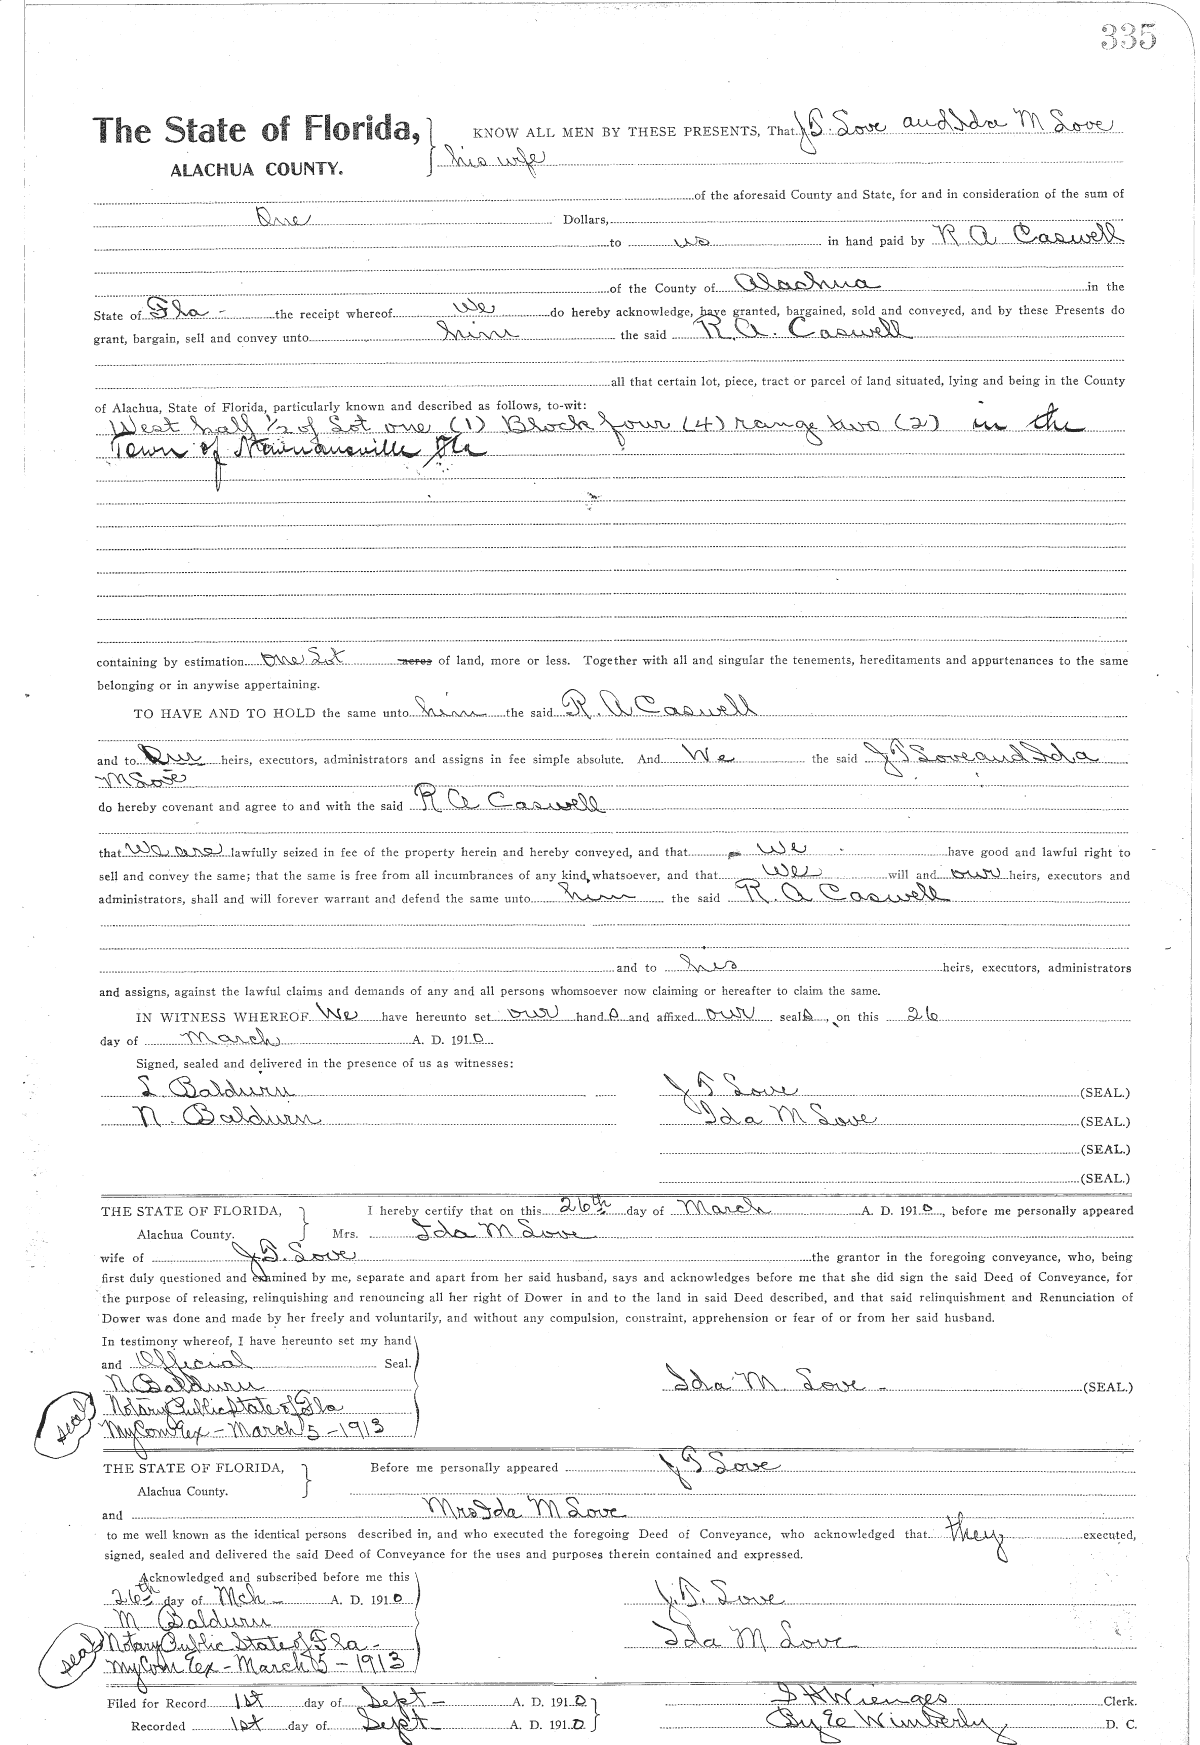 335
The State of Florida, KNOW ALL MEN BY THESE PRESENTS, That J T Love and Ida M Love
ALACHUA COUNTY. his wife
of the aforesaid County and State, for and in consideration of the sum of
One Dollars,
to us in hand paid by R A Caswell
of the County of Alachua in the
State of Fla - the receipt whereof we do hereby acknowledge, have granted, bargained, sold and conveyed, and by these Presents do
grant, bargain, sell and convey unto him the said R. A. Caswell
all that certain lot, piece, tract or parcel of land situated, lying and being in the County
of Alachua, State of Florida, particularly known and described as follows, to-wit:
West half 1/2 of Lot one (1) Block four (4) range two (2) in the
Town of Newnansville Fla
containing by estimation one Lot acres of land, more or less. Together with all and singular the tenements, hereditaments and appurtenances to the same
belonging or in anywise appertaining.
TO HAVE AND TO HOLD the same unto him the said R. A Caswell
and to heirs, executors, administrators and assigns in fee simple absolute. And We the said J T Love and Ida
M Love
do hereby covenant and agree to and with the said R A Caswell
that We are lawfully seized in fee of the property herein and hereby conveyed, and that we have good and lawful right to
sell and convey the same; that the same is free from all incumbrances of any kind whatsoever, and that We will and our heirs, executors and
administrators, shall and will forever warrant and defend the same unto him the said R A Caswell
and to his heirs, executors, administrators
and assigns, against the lawful claims and demands of any and all persons whomsoever now claiming or hereafter to claim the same.
IN WITNESS WHEREOF We have hereunto set our hands and affixed our seals, on this 26
day of March A. D. 1910
Signed, sealed and delivered in the presence of us as witnesses:
L Baldwin J T Love (SEAL.)
N. Baldwin Ida M Love (SEAL.)
(SEAL.)
(SEAL.)
THE STATE OF FLORIDA, I hereby certify that on this 26th day of March A. D. 1910, before me personally appeared
Alachua County. Mrs. Ida M Love
wife of J. T. Love the grantor in the foregoing conveyance, who, being
first duly questioned and examined by me, separate and apart from her said husband, says and acknowledges before me that she did sign the said Deed of Conveyance, for
the purpose of releasing, relinquishing and renouncing all her right of Dower in and to the land in said Deed described, and that said relinquishment and Renunciation of
Dower was done and made by her freely and voluntarily, and without any compulsion, constraint, apprehension or fear of or from her said husband.
In testimony whereof, I have hereunto set my hand
and Official Seal.
N. Baldwin Ida M. Love - (SEAL.)
seal Notary Public State of Fla
My Com Ex - March 5 - 1913
THE STATE OF FLORIDA, Before me personally appeared J T Love
Alachua County.
and Mrs Ida M Love
to me well known as the identical persons described in, and who executed the foregoing Deed of Conveyance, who acknowledged that they executed,
signed, sealed and delivered the said Deed of Conveyance for the uses and purposes therein contained and expressed.
Acknowledged and subscribed before me this
26th day of Mch - A. D. 1910 J. T. Love
M Baldwin Ida M Love
seal Notary Public State of Fla -
My Com Ex - March 5 - 1913
Filed for Record 1st day of Sept - A. D. 1910 S H Wienges Clerk.
Recorded 1st day of Sept - A. D. 1910 By E Wimberly D. C.